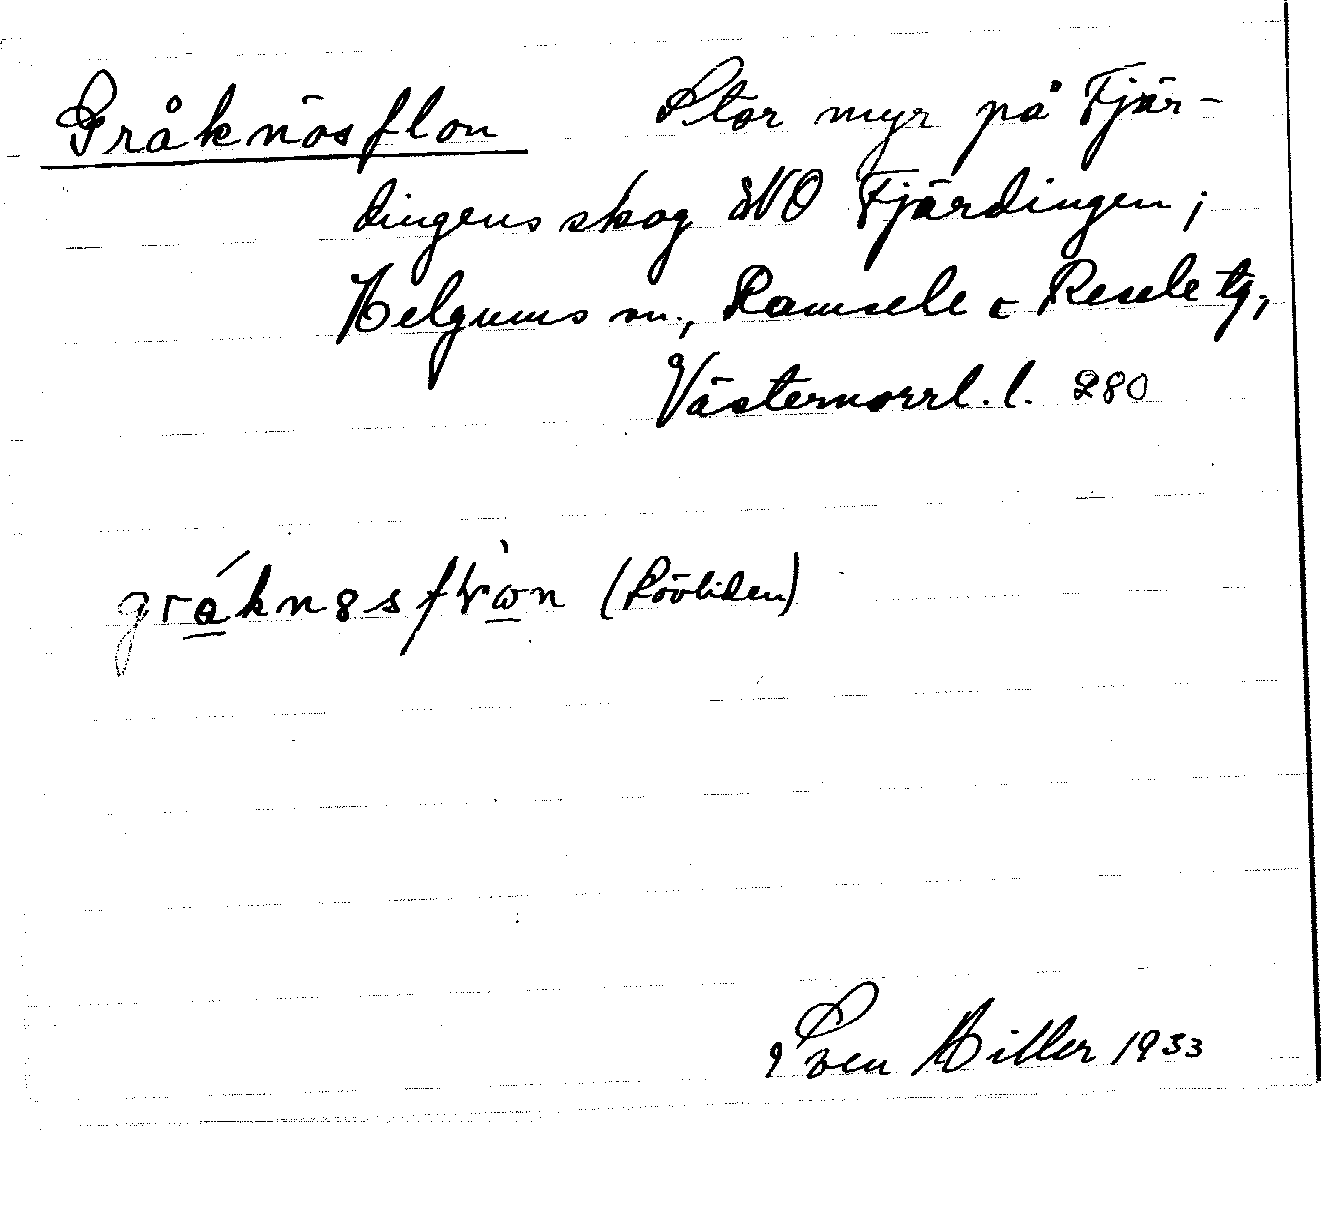 Gråknösflon Stor myr på Fjär-
dingens skog NO Fjärdingen;
Helgums sn., Ramsele o Resele tg,
Västernorrl. l. 280
(Rövliden)
Sven Hiller 1933